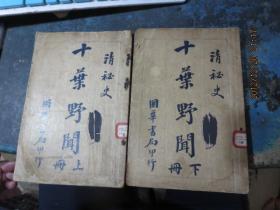 清祕史
十葉野聞 上冊
國華書局印行
清祕史
十葉野聞 下冊
國華書局印行